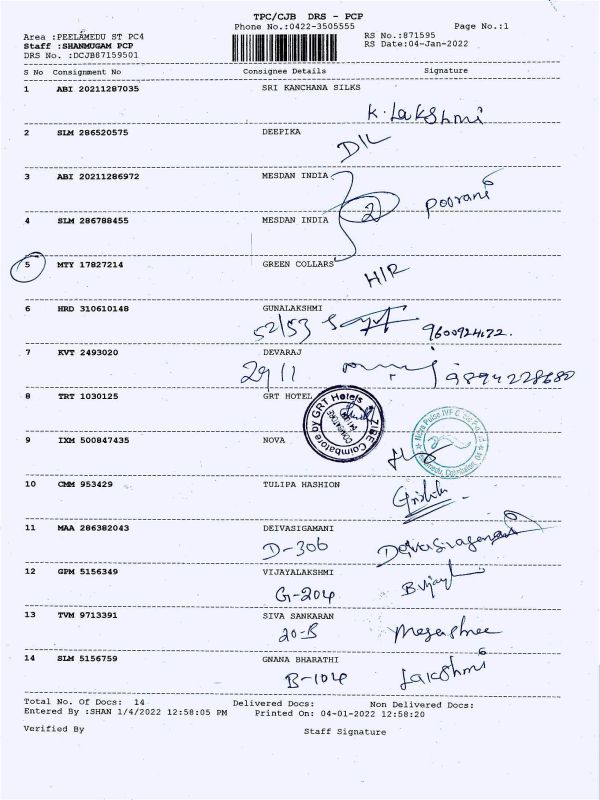 TPC/CJB DRS - PCP
Phone No.:0422-3505555 Page No.:1
Area :PEELAMEDU ST PC4 RS No.:871595
Staff :SHANMUGAM PCP RS Date:04-Jan-2022
DRS No. :DCJB87159501
S No Consignment No Consignee Details Signature
1 ABI 20211287035 SRI KANCHANA SILKS
K. Lakshmi
2 SLM 286520575 DEEPIKA
D/L
3 ABI 20211286972 MESDAN INDIA
2 Poorani
4 SLM 286788455 MESDAN INDIA
5 MTY 17827214 GREEN COLLARS
H/R
6 HRD 310610148 GUNALAKSHMI
52/53 9600924172.
7 KVT 2493020 DEVARAJ
29/1 9894228680
8 TRT 1030125 GRT HOTEL
Coimbatore by GRT Hotels
COIMBATORE
9 IXM 500847435 NOVA
Nova Pulse IVF C
Coimbatore
10 CMM 953429 TULIPA HASHION
11 MAA 286382043 DEIVASIGAMANI
D-306 Deivasigamani
12 GPM 5156349 VIJAYALAKSHMI
G-204 B.Vijayl
13 TVM 9713391 SIVA SANKARAN
20-B
14 SLM 5156759 GNANA BHARATHI
B-104 Lakshmi
Total No. Of Docs: 14 Delivered Docs: Non Delivered Docs:
Entered By :SHAN 1/4/2022 12:58:05 PM Printed On: 04-01-2022 12:58:20
Verified By Staff Signature